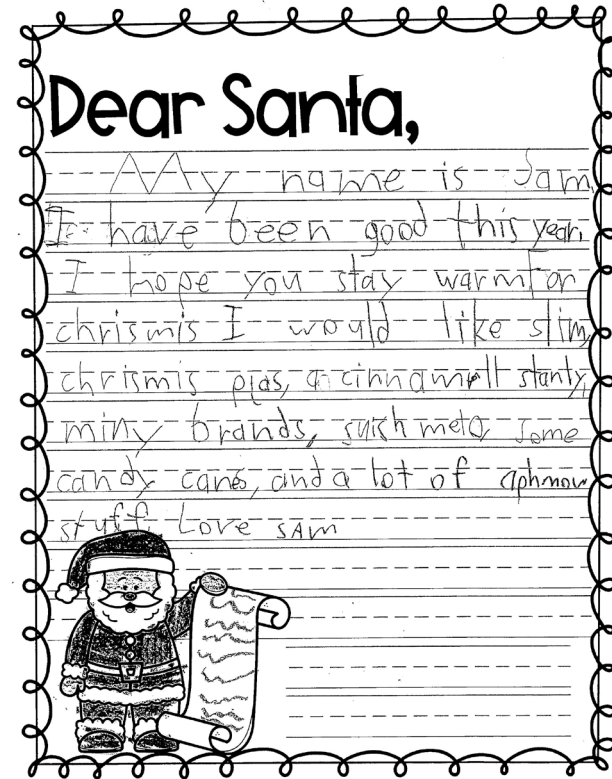 Dear Santa,
My name is Sam
I have been good this year,
I hope you stay warm For
chrismis I would like slim,
chrismis pjas, a cinnamoll stanly,
miny brands, suish melo, some
candy canes, and a lot of aphmow
stuff Love SAM